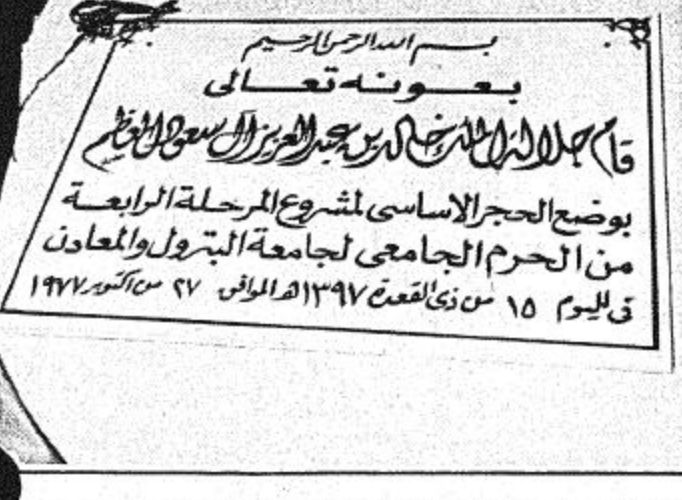 بسم الله الرحمن الرحيم
بعونه تعالى
قام جلالة الملك خالد بن عبد العزيز آل سعود المعظم
بوضع الحجر الاساسى لمشروع المرحلة الرابعة
من الحرم الجامعى لجامعة البترول والمعادن
فى اليوم ١٥ من ذى القعدة ١٣٩٧هـ الموافق ٢٧ من اكتوبر ١٩٧٧